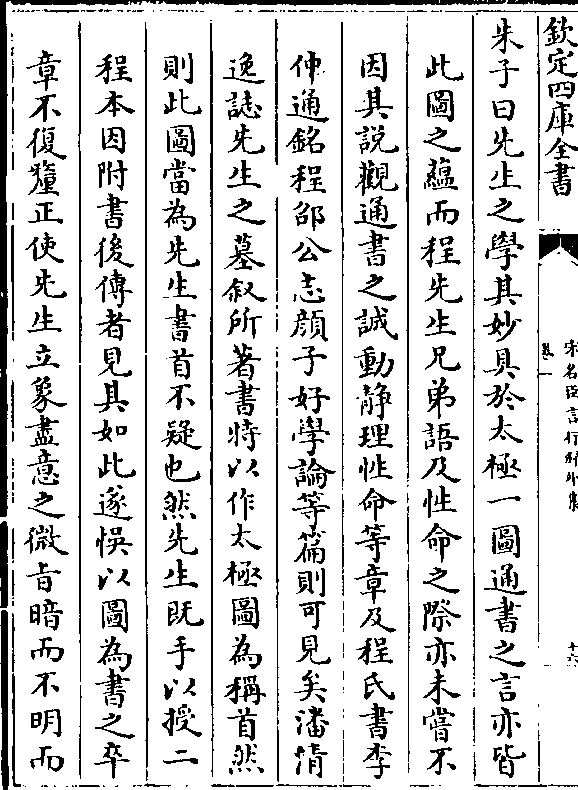 欽定四庫全書
宋名臣言行錄外集
卷一
十六
朱子曰先生之學其妙具於太極一圖通書之言亦皆
此圖之蘊而程先生兄弟語及性命之際亦未嘗不
因其說觀通書之誠動静理性命等章及程氏書李
仲通銘程邵公志顔子好學論等篇則可見矣潘清
逸誌先生之墓叙所著書特以作太極圖為稱首然
則此圖當為先生書首不疑也然先生既手以授二
程本因附書後傳者見其如此遂悞以圖為書之卒
章不復釐正使先生立象盡意之微旨暗而不明而